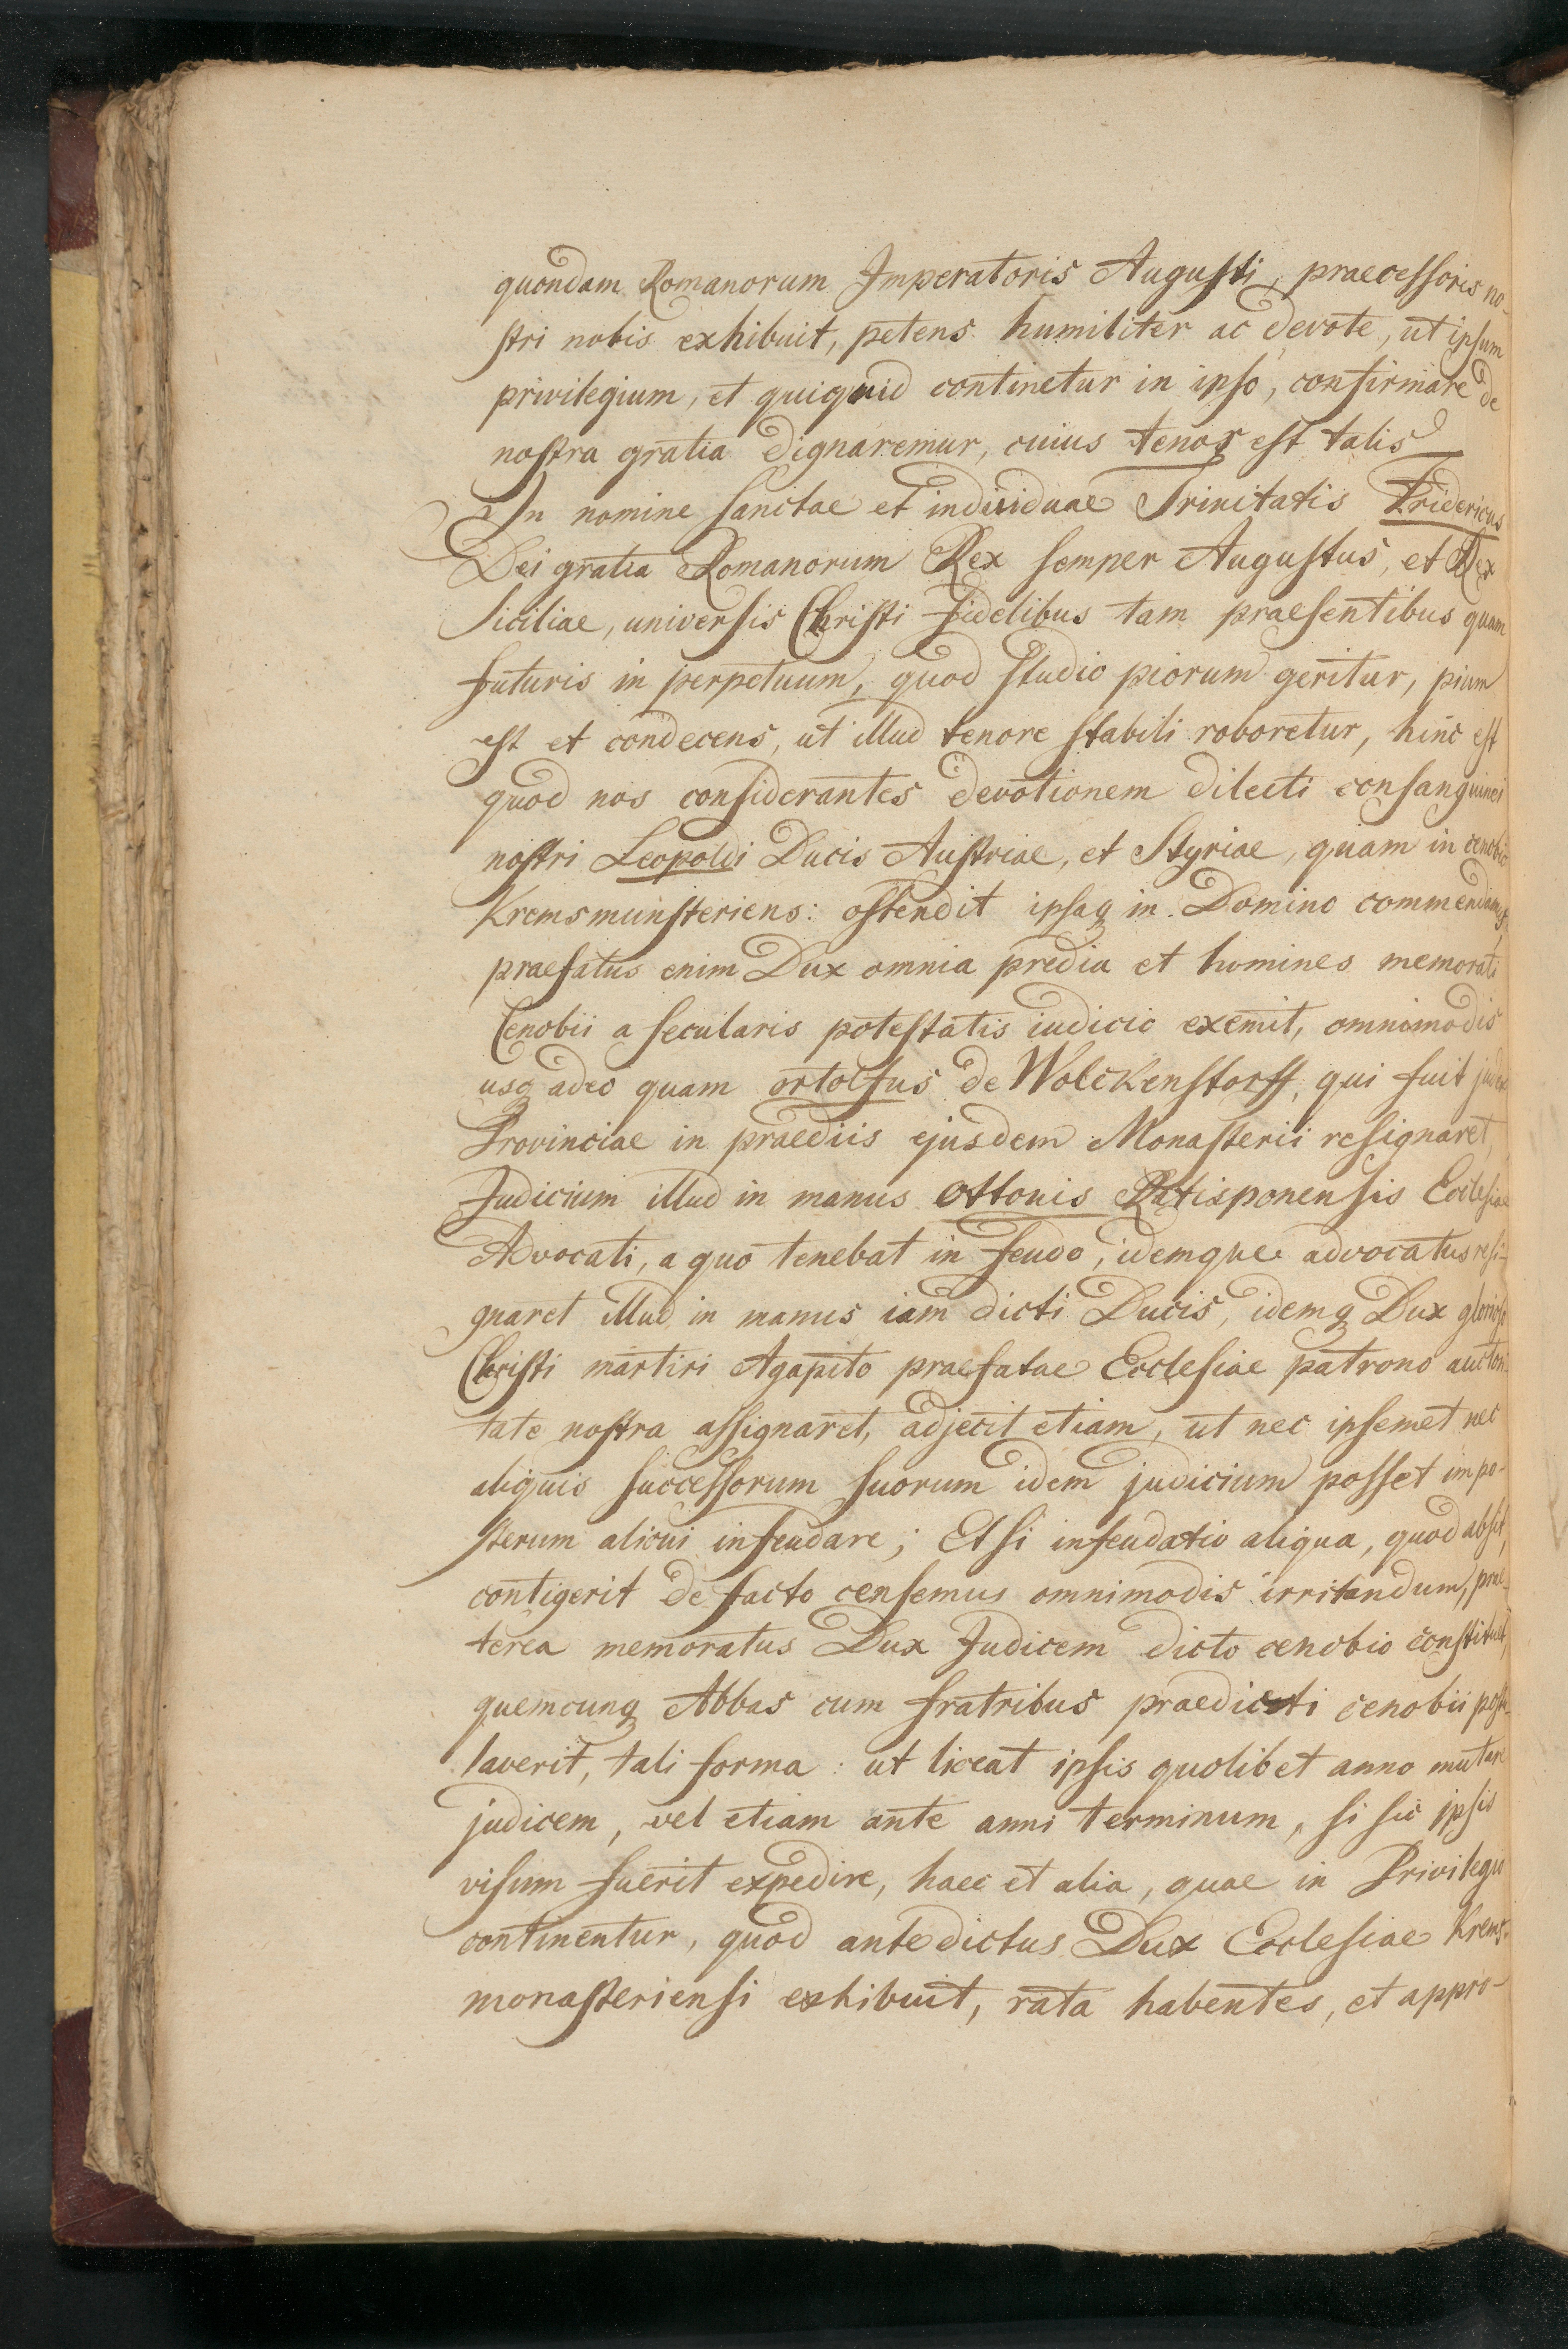 quondam Romanorum Imperatoris Augusti, praecessoris no-
stri nobis exhibuit, petens humiliter ac devote, ut ipsum
privilegium, et quiquid continetur in ipso, confirmare de
nostra gratia dignaremur, cuius tenor est talis
In nomine sanctae et individuae Trinitatis Fridericus
Dei gratia Romanorum Rex semper Augustus, et Rex
Siciliae, universis Christi fidelibus tam praesentibus quam
futuris in perpetuum, quod studio piorum geritur, pium
est et condecens, ut illud tenore stabili roboretur, hinc est
quod nos considerantes devotionem dilecti consanguinei
nostri Leopoldi Ducis Austriae, et Styriae, quam in cenobio
Kremsmunsteriens: ostendit ipsaq in Domino commendamus,
praefatus enim Dux omnia predia et homines memorati
Cenobii a secularis potestatis iudicio exemit, omnimodis
usq adeo quam ortolfus de Wolckenstorff, qui fuit judex
Provinciae in praediis ejusdem Monasterii resignaret,
Judicium illud in manus Ottonis Ratisponensis Ecclesiae
Advocati, a quo tenebat in feudo, idemque advocatus resi-
gnaret illud in manus iam dicti Ducis, idemq Dux glorioso
Christi martiri Agapito praefatae Ecclesiae patrono auctori-
tate nostra assignaret, adjecit etiam, ut nec ipsemet nec
aliquis successorum suorum idem judicium posset impo-
sterum alicui infeudare; Et si infeudatio aliqua, quod absit,
contigerit de facto censemus omnimodis irritandum, prae-
terea memoratus Dux Judicem dicto cenobio constituet,
quemcunq Abbas cum fratribus praedicti cenobii postu-
laverit, tali forma: ut liceat ipsis quolibet anno mutare
judicem, vel etiam ante anni terminum, si sic ipsis
visum fuerit expedire, haec et alia, quae in Privilegio
continentur, quod antedictus Dux Ecclesiae Krems-
monasteriensi exhibuit, rata habentes, et appro-